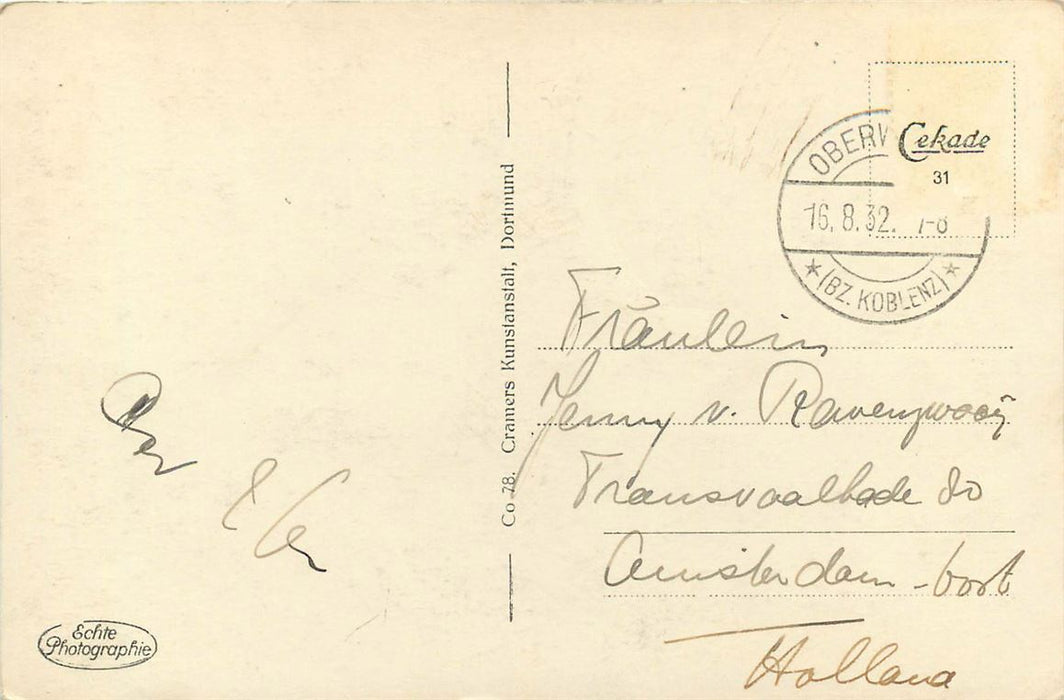 OBERW
Cekade
31
16.8.32. 7-8
(BZ. KOBLENZ)
Co 78. Cramers Kunstanstalt, Dortmund
Fräulein
Jenny v. Ravenzwaaij
Transvaalkade 80
Amsterdam-Oost
Holland
Echte
Photographie